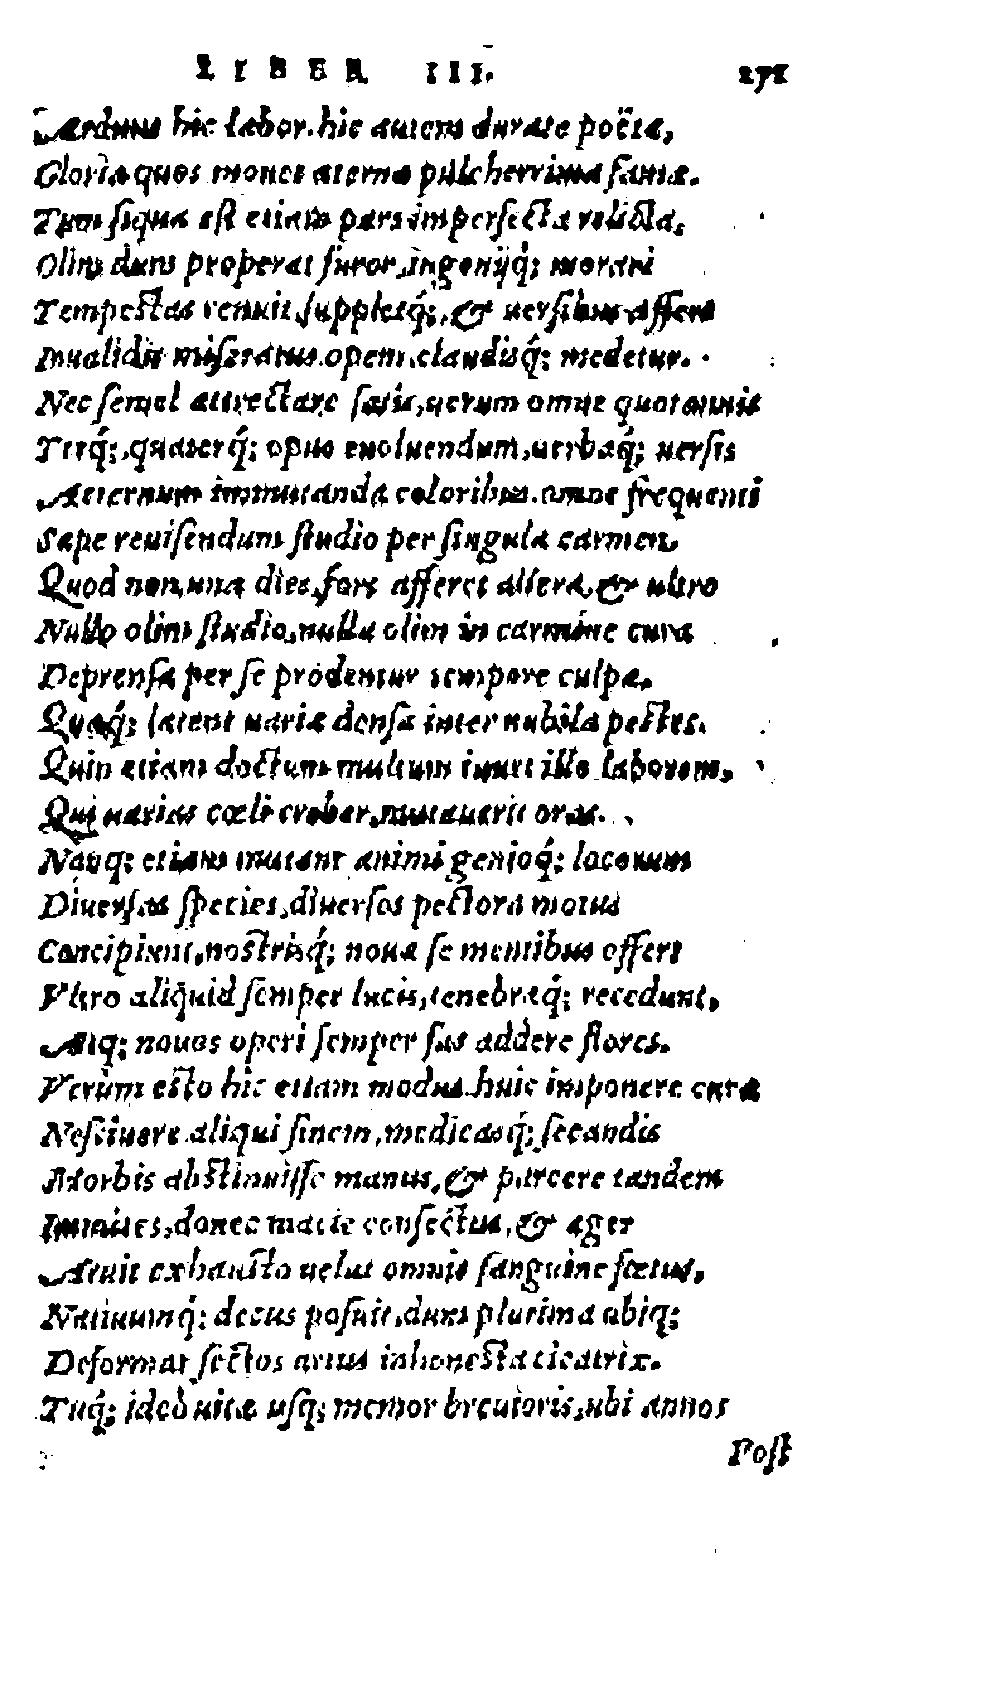 LIBER III. 271
Arduus hic labor. hic autem durate poëtæ,
Gloria quos mouet æternæ pulcherrima famæ.
Tum siqua est etiam pars imperfecta relicta,
Olim dum properat furor, ingenijq́; morari
Tempestas renuit, suppletq́;, & uersibus affers
Inualidis miseratus opem, claudisq́; medetur.
Nec semel attrectare satis, uerum omne quotannis
Terq́;, quaterq́; opus euoluendum, uerbaq́; uersis
Aeternum immutanda coloribus. omne frequenti
Sæpe reuisendum studio per singula carmen.
Quod non una dies, fors afferet altera, & ultro
Nullo olim studio, nulla olim in carmine cura
Deprensæ per se prodentur tempore culpæ.
Quæq́; latent uariæ densa inter nubila pestes.
Quin etiam doctum multum iuuet ille laborem,
Qui uarias cœli creber mutauerit oras.
Nanq; etiam mutant animi genioq́; locorum
Diuersas species, diuersos pectora motus
Concipiunt, nostrisq́; noua se mentibus offert
Vltro aliquid semper lucis, tenebræq́; recedunt,
Atq; nouos operi semper fas addere flores.
Verùm esto hic etiam modus. huic imponere curæ
Nesciuere aliqui finem, medicasq́; secandis
Morbis abstinuisse manus, & parcere tandem
Immites, donec macie confectus, & æger
Aruit exhausto uelut omnis sanguine fœtus,
Natiuumq́; decus posuit, dum plurima ubiq;
Deformat sectos artus inhonesta cicatrix.
Tuq́; ideò uitæ usq; memor breuioris, ubi annos
Post